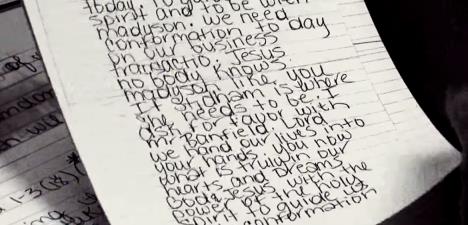 today, to gui
spirit and to be with
madyson. we need
conformation to day
on our business
transactio. Jesus
no body knows.
madyson like you
if Stidham is where
she needs to be. I
ask for favor with
mr Banfield Lord
we hand our lives into
your hands. You now
what is truly in our
hearts and Dreams
God. Jesus, with the
power of the holy
spirit to guide us
conformation
1-3(18)